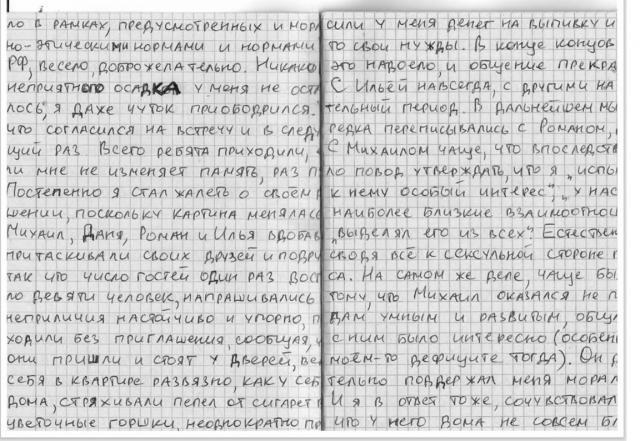 ло в рамках, предусмотренных и мор
но-этическими нормами и нормами
РФ, весело, доброжелательно. Никако
неприятного осадка у меня не оста
лось, я даже чуток приободрился.
что согласился на встречу и в следу
щий раз. Всего ребята приходили,
ли мне не изменяет память, раз п
Постепенно я стал жалеть о своём р
шении, поскольку картина менялась
Михаил, Даня, Роман и Илья вдобав
притаскивали своих друзей и подру
так что число гостей один раз дост
ло девяти человек, напрашивались
неприличия настойчиво и упорно, п
ходили без приглашения, сообщая, ч
они пришли и стоят у дверей, ве
себя в квартире развязно, как у себ
дома, стряхивали пепел от сигарет в
цветочные горшки, неоднократно пр
сили у меня денег на выпивку и
то свои нужды. В конце концов
это надоело, и общение прекра
С Ильёй навсегда, с другими на
тельный период. В дальнейшем мы
редка переписывались с Романом,
с Михаилом чаще, что впоследств
ло повод утверждать, что я „испы
к нему особый интерес", „у нас
наиболее близкие взаимоотнош
„выделял его из всех". Естествен
сводя всё к сексуальной стороне в
са. На самом же деле, чаще бы
тому, что Михаил оказался не п
дам умным и развитым, общ
с ним было интересно (особен
моём-то дефиците тогда). Он
тельно поддержал меня морал
И я в ответ тоже, сочувствовал
что у него дома не совсем бл